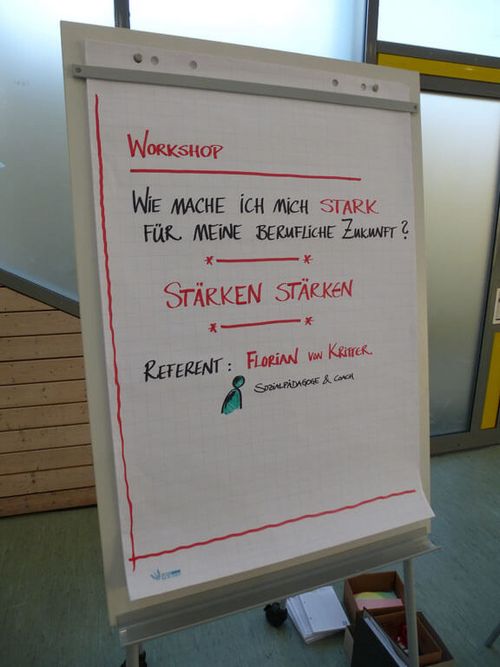 WORKSHOP
WIE MACHE ICH MICH STARK
FÜR MEINE BERUFLICHE ZUKUNFT?
* *
STÄRKEN STÄRKEN
* *
REFERENT: FLORIAN VON KRITTER
SOZIALPÄDAGOGE & COACH